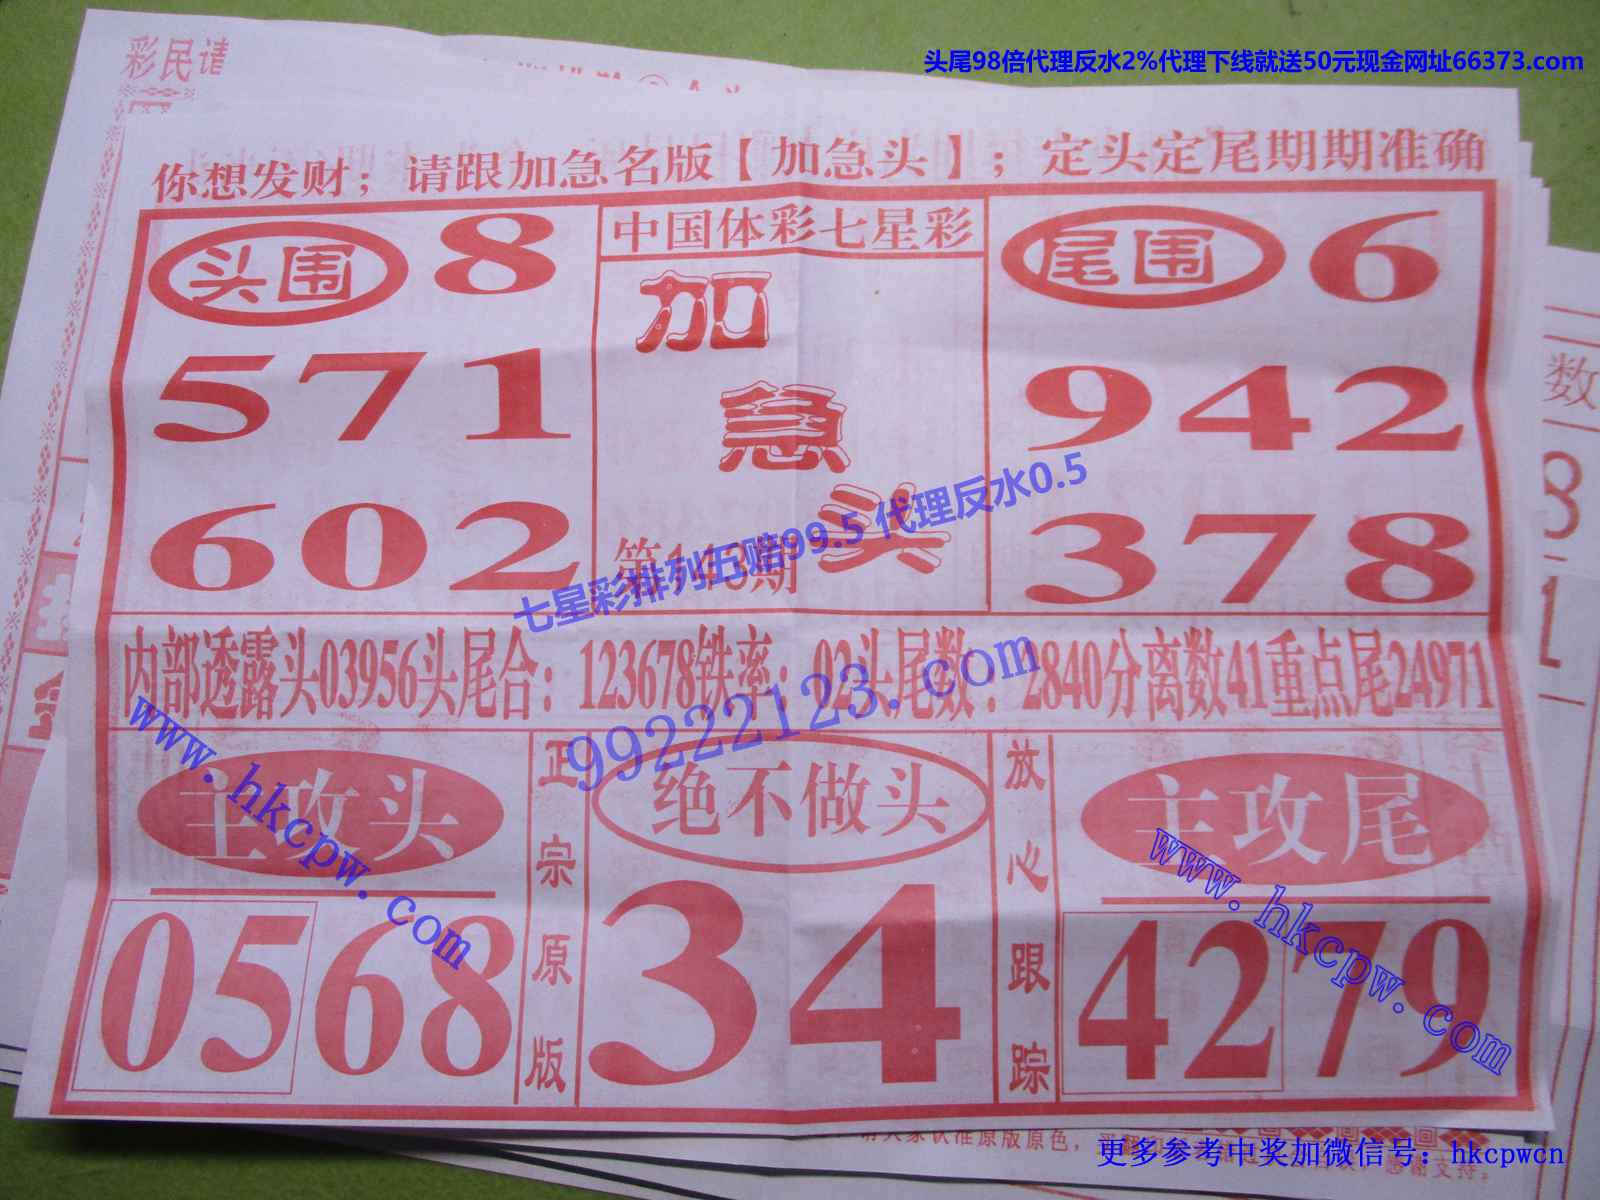 头尾98倍代理反水2%代理下线就送50元现金网址66373.com
彩民请
你想发财；请跟加急名版【加急头】；定头定尾期期准确
头围 8
571
602
中国体彩七星彩
加
急
头
第143期
尾围 6
942
378
七星彩排列五赔99.5 代理反水0.5
内部透露头03956头尾合：123678铁率：02头尾数：2840分离数41重点尾24971
99222123.com
www.hkcpw.com
主攻头
0568
正宗原版
绝不做头
34
放心跟踪
主攻尾
4279
www.hkcpw.com
数
8
1
请大家认准原版原色，
更多参考中奖加微信号：hkcpwcn